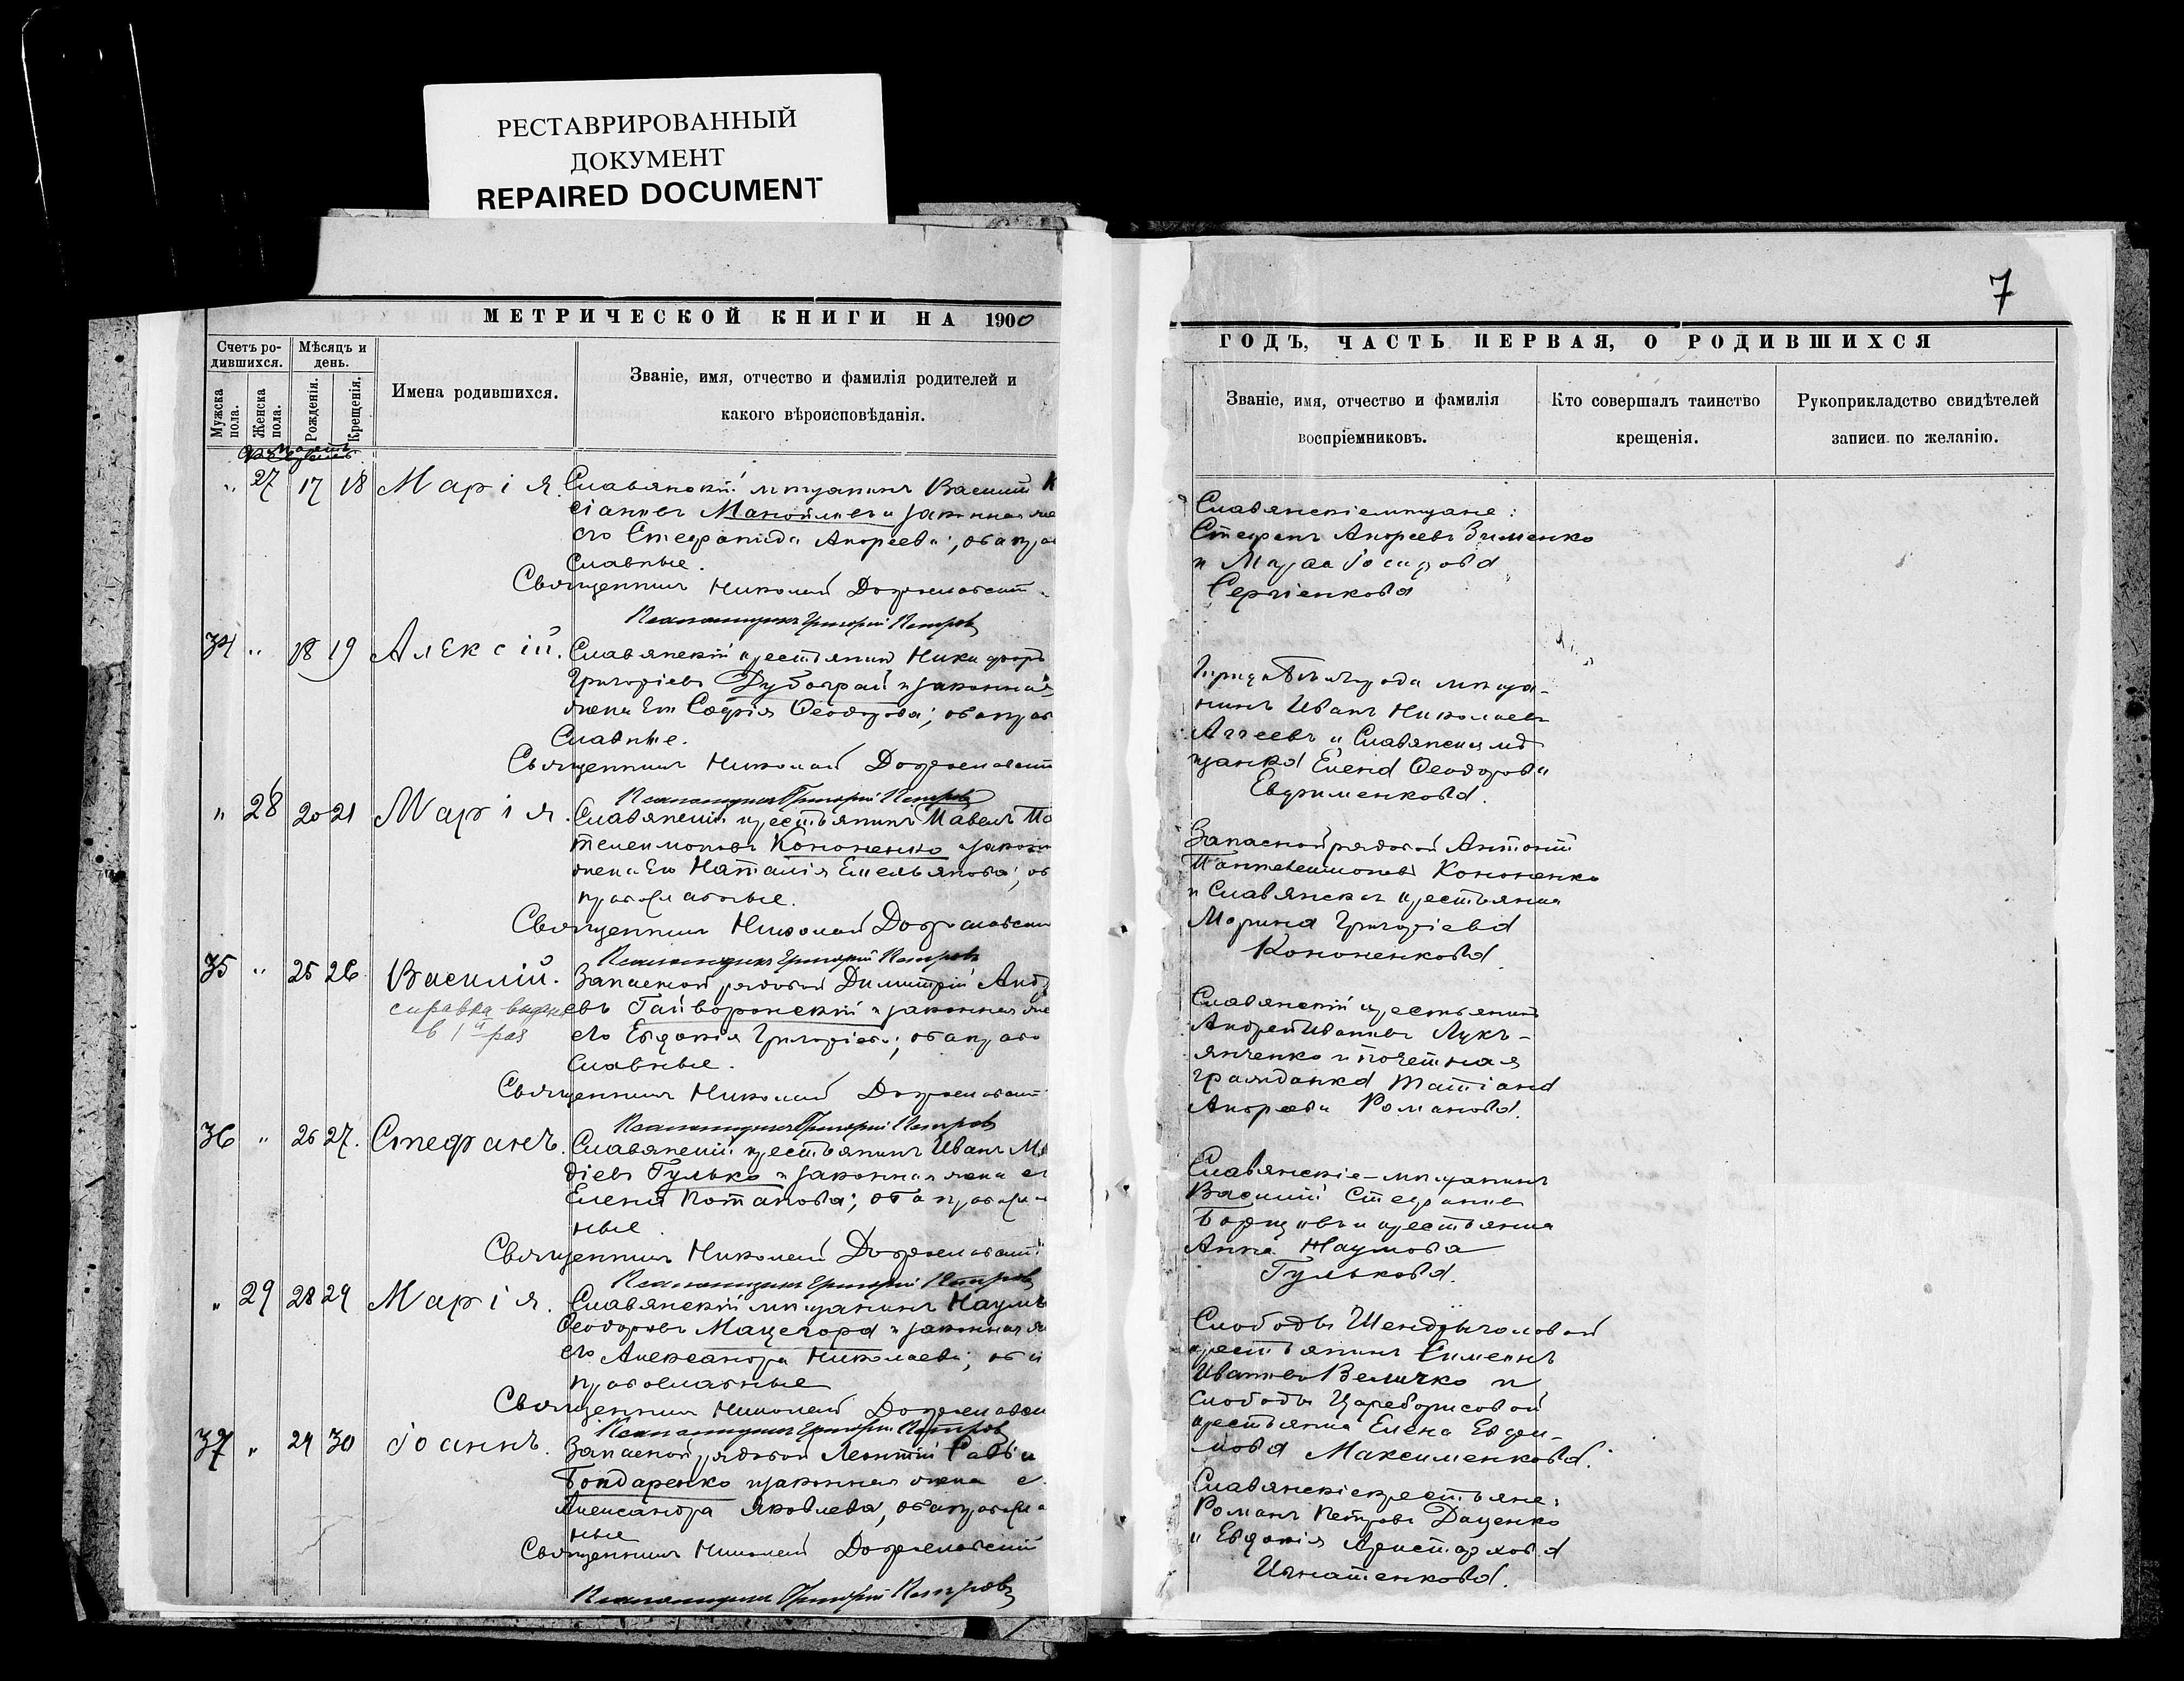 РЕСТАВРИРОВАННЫЙ
ДОКУМЕНТ
REPAIRED DOCUMENT
7
МЕТРИЧЕСКОЙ КНИГИ НА 1900
Счетъ ро-
дившихся.
Мѣсяцъ и
день.
Мужска
пола.
Женска
пола.
Рожденія.
Крещенія.
Имена родившихся.
Званіе, имя, отчество и фамилія родителей и
какого вѣроисповѣданія.
„ 27 17 18 Марія. Славянскій мѣщанинъ Василій К
сіановъ Манойловъ и законная же
его Стефанида Андреева; оба пра
славные.
Священникъ Николай
Псаломщикъ Григорій Петровъ
34 „ 18 19 Алексій. Славянскій крестьянинъ Никифоръ
Григоріевъ и законная
жена его Софія Ѳеодорова; оба прав
славные.
Священникъ Николай
Псаломщикъ Григорій Петровъ
„ 28 20 21 Марія. Славянскій крестьянинъ Павелъ Па
телеимоновъ Кононенко и законн
жена его Наталія Емельянова; об
православные.
Священникъ Николай
Псаломщикъ Григорій Петровъ
35 „ 25 26 Василій. Запасной рядовой Димитрій Андр
справка выдана
в 1й раз
евъ Гайворонскій и законная же
его Евдокія Григоріева; оба право
славные.
Священникъ Николай
Псаломщикъ Григорій Петровъ
36 „ 26 27. Стефанъ. Славянскій крестьянинъ Иванъ
діевъ Гулько и законная жена ег
Елена Потапова; оба правосла
ные.
Священникъ Николай
Псаломщикъ Григорій Петровъ
„ 29 28 29 Марія. Славянскій мѣщанинъ Наумъ
Ѳеодоровъ Мацегора и законная же
его Александра Николаева; оба
православные
Священникъ Николай
Псаломщикъ Григорій Петровъ
37 „ 29 30 Іоаннъ. Запасной рядовой Леонтій Савви
Бондаренко и законная жена е
Александра Яковлева, оба правосла
ные
Священникъ Николай
Псаломщикъ Григорій Петровъ
ГОДЪ, ЧАСТЬ ПЕРВАЯ, О РОДИВШИХСЯ
Званіе, имя, отчество и фамилія
воспріемниковъ.
Кто совершалъ таинство
крещенія.
Рукоприкладство свидѣтелей
записи по желанію.
Славянскіе мѣщане:
Стефанъ Андреевъ Зименко
и
Сергіенкова
города мѣща-
нинъ Иванъ Николаевъ
Агеевъ и Славянская мѣ
щанка Елена Ѳеодорова
Евфименкова.
Запасной рядовой Антоній
Пантелеимоновъ Кононенко
и Славянская крестьянка
Марина Григоріева
Кононенкова
Славянскій крестьянинъ
Андрей Ивановъ Лукь-
янченко и почетная
гражданка Татіана
Андреева Романова.
Славянскіе - мѣщанинъ
Василій Стефановъ
Борщовъ и крестьянка
Анна Наумова
Гулькова.
Слободы
крестьянинъ Симеонъ
Ивановъ Величко и
слободы Цареборисовой
крестьянка Елена Евдоки-
мова Максименкова.
Славянскіе крестьяне:
Романъ Петровъ Даценко
и Евдокія Аристархова
Игнатенкова.